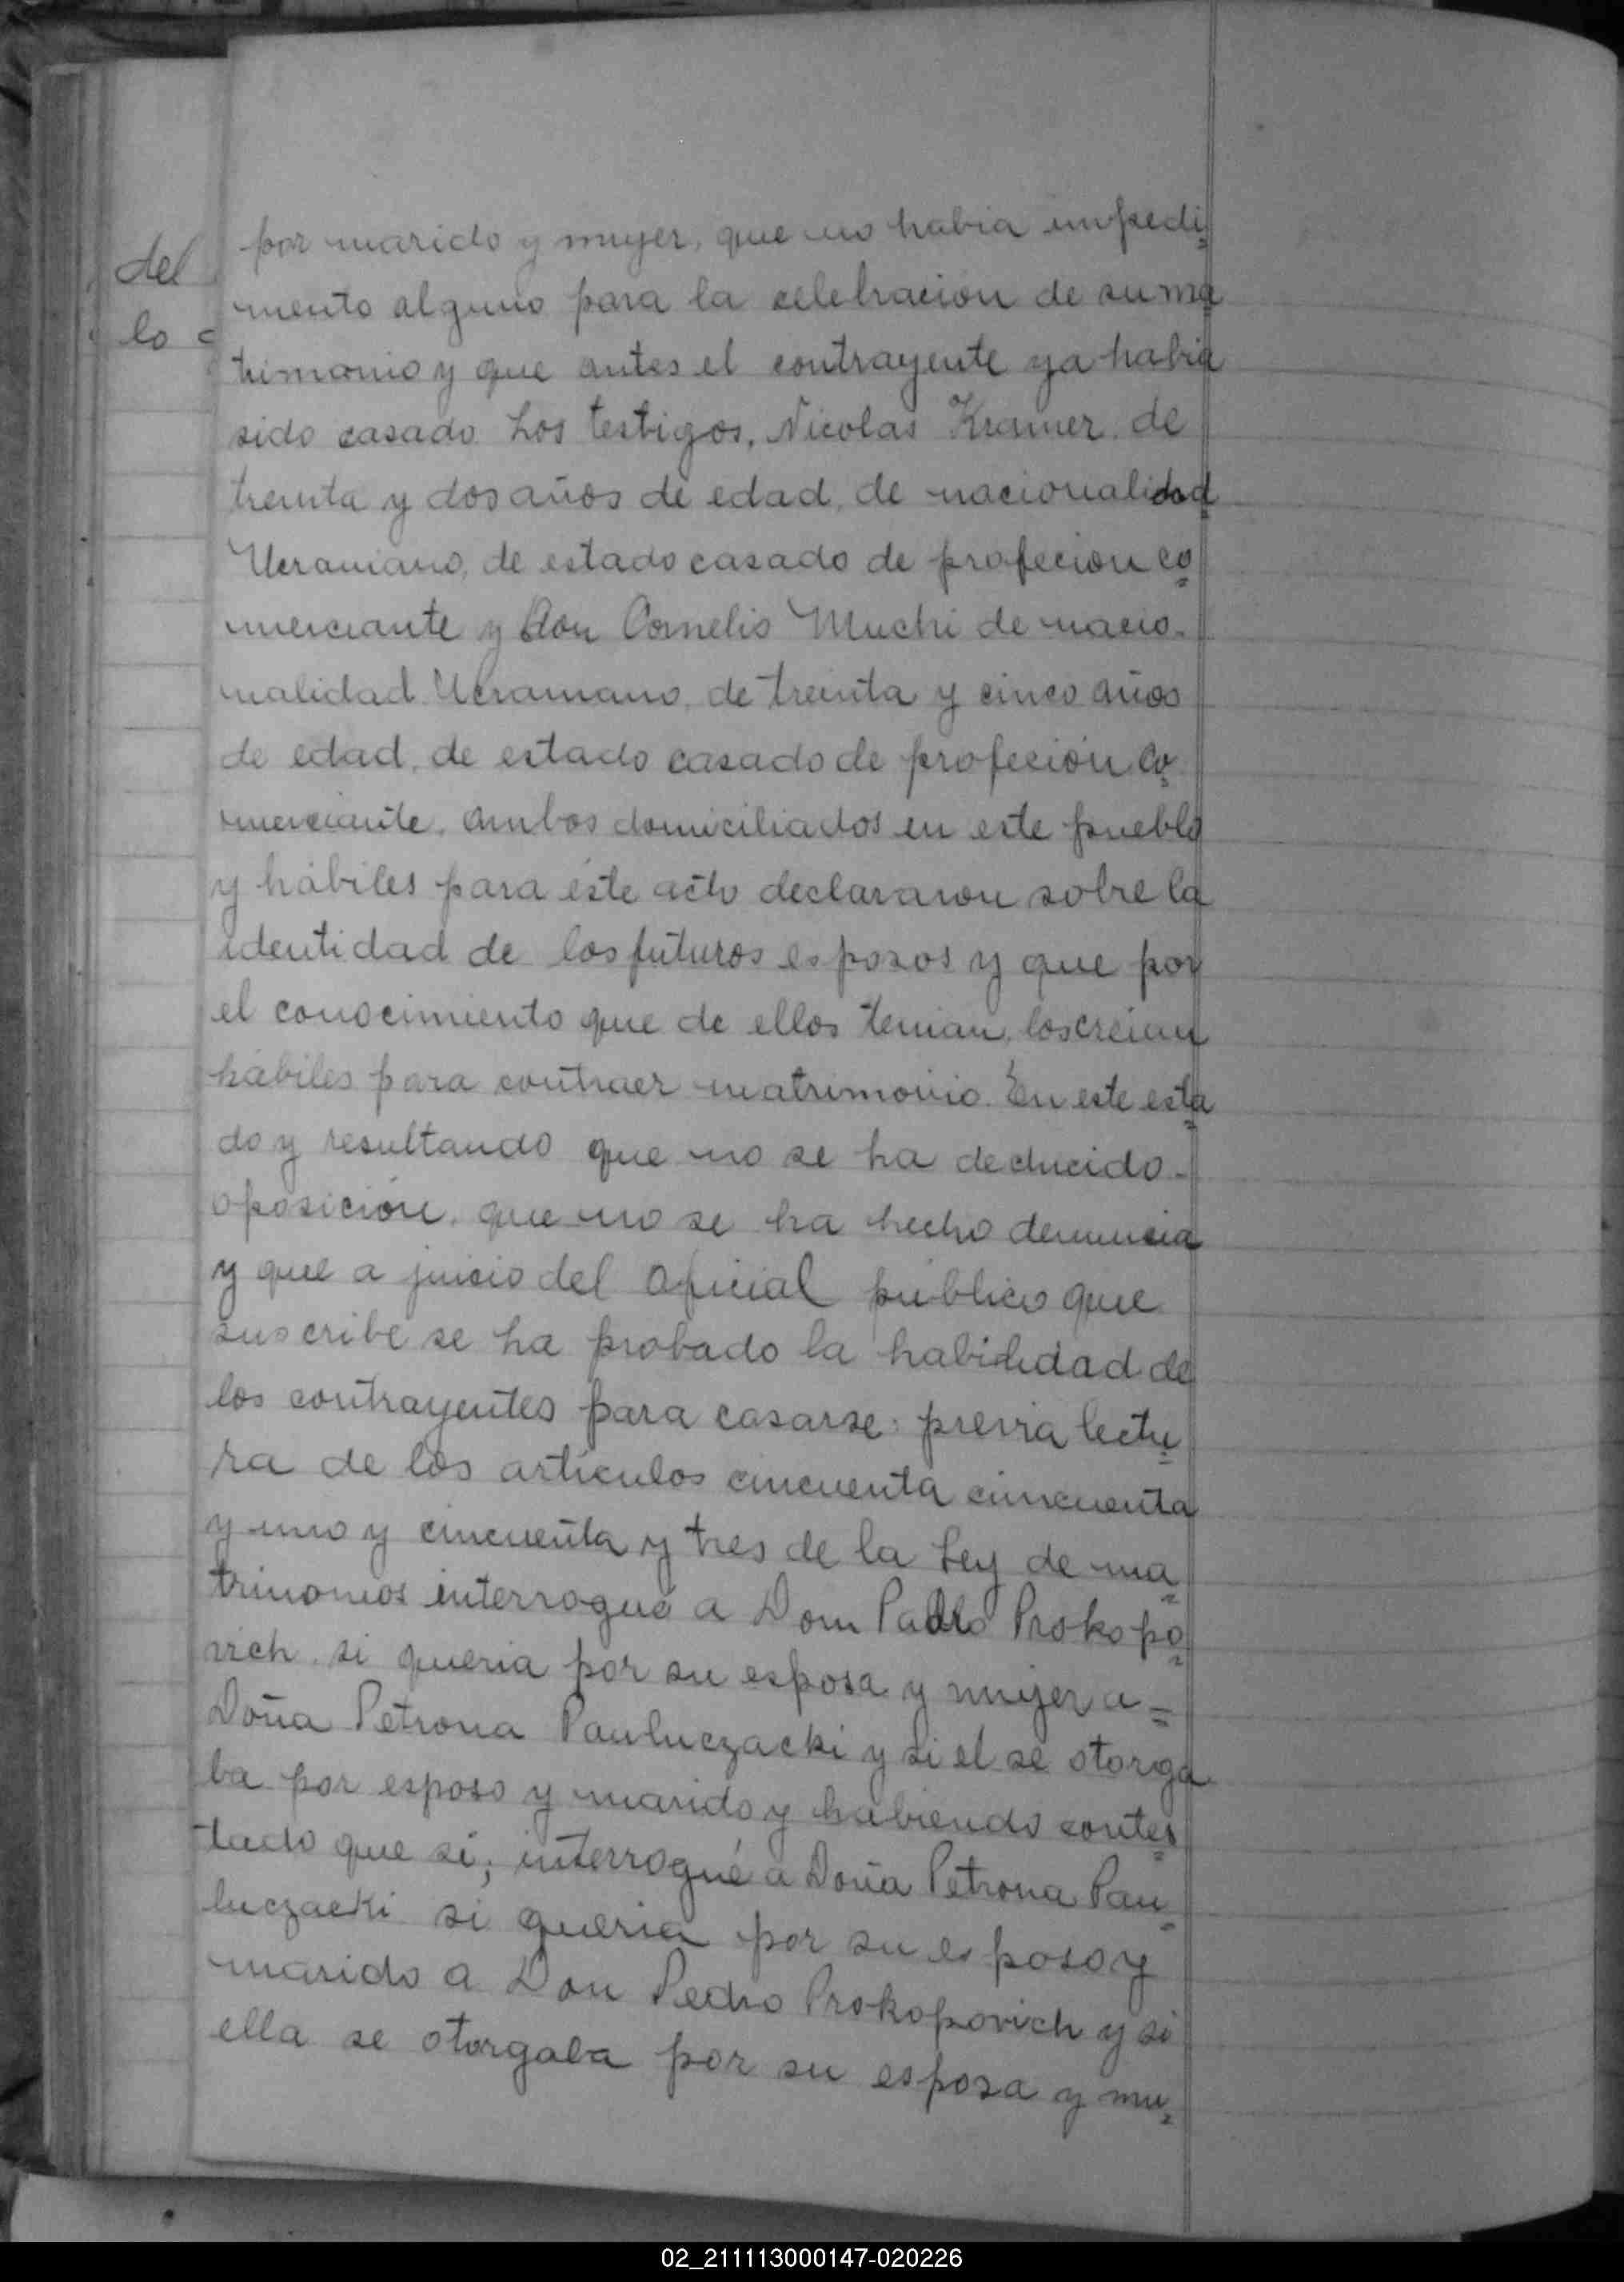 del
lo c
por marido y mujer, que no habia impedi
mento alguno para la celebracion de su ma
trimonio y que antes el contrayente ya habia
sido casado. Los testigos, Nicolas Kramer, de
treinta y dos años de edad, de nacionalidad
Ucraniano, de estado casado de profecion co
merciante y don Cornelio Muchi de nacio-
nalidad Ucraniano, de treinta y cinco años
de edad, de estado casado de profeción co
merciante, ambos domiciliados en este pueblo
y hábiles para éste acto declararon sobre la
identidad de los futuros esposos y que por
el conocimiento que de ellos tenian, los creian
hábiles para contraer matrimonio. En este esta
do y resultando que no se ha deducido-
oposición, que no se ha hecho denuncia
y que a juicio del oficial público que
suscribe se ha probado la habilidad de
los contrayentes para casarse: previa lectu
ra de los artículos cincuenta cincuenta
y uno y cincuenta y tres de la Ley de ma
trimonios interrogué a Don Pablo Prokopo
vich si queria por su esposa y mujer a =
Doña Petrona Pauluczacki y si el se otorga
ba por esposo y marido y habiendo contes
tado que si; interrogué a Doña Petrona Pau
luczacki si queria por su esposo y
marido a Don Pedro Prokopovich y si
ella se otorgaba por su esposa y mu
02_211113000147-020226